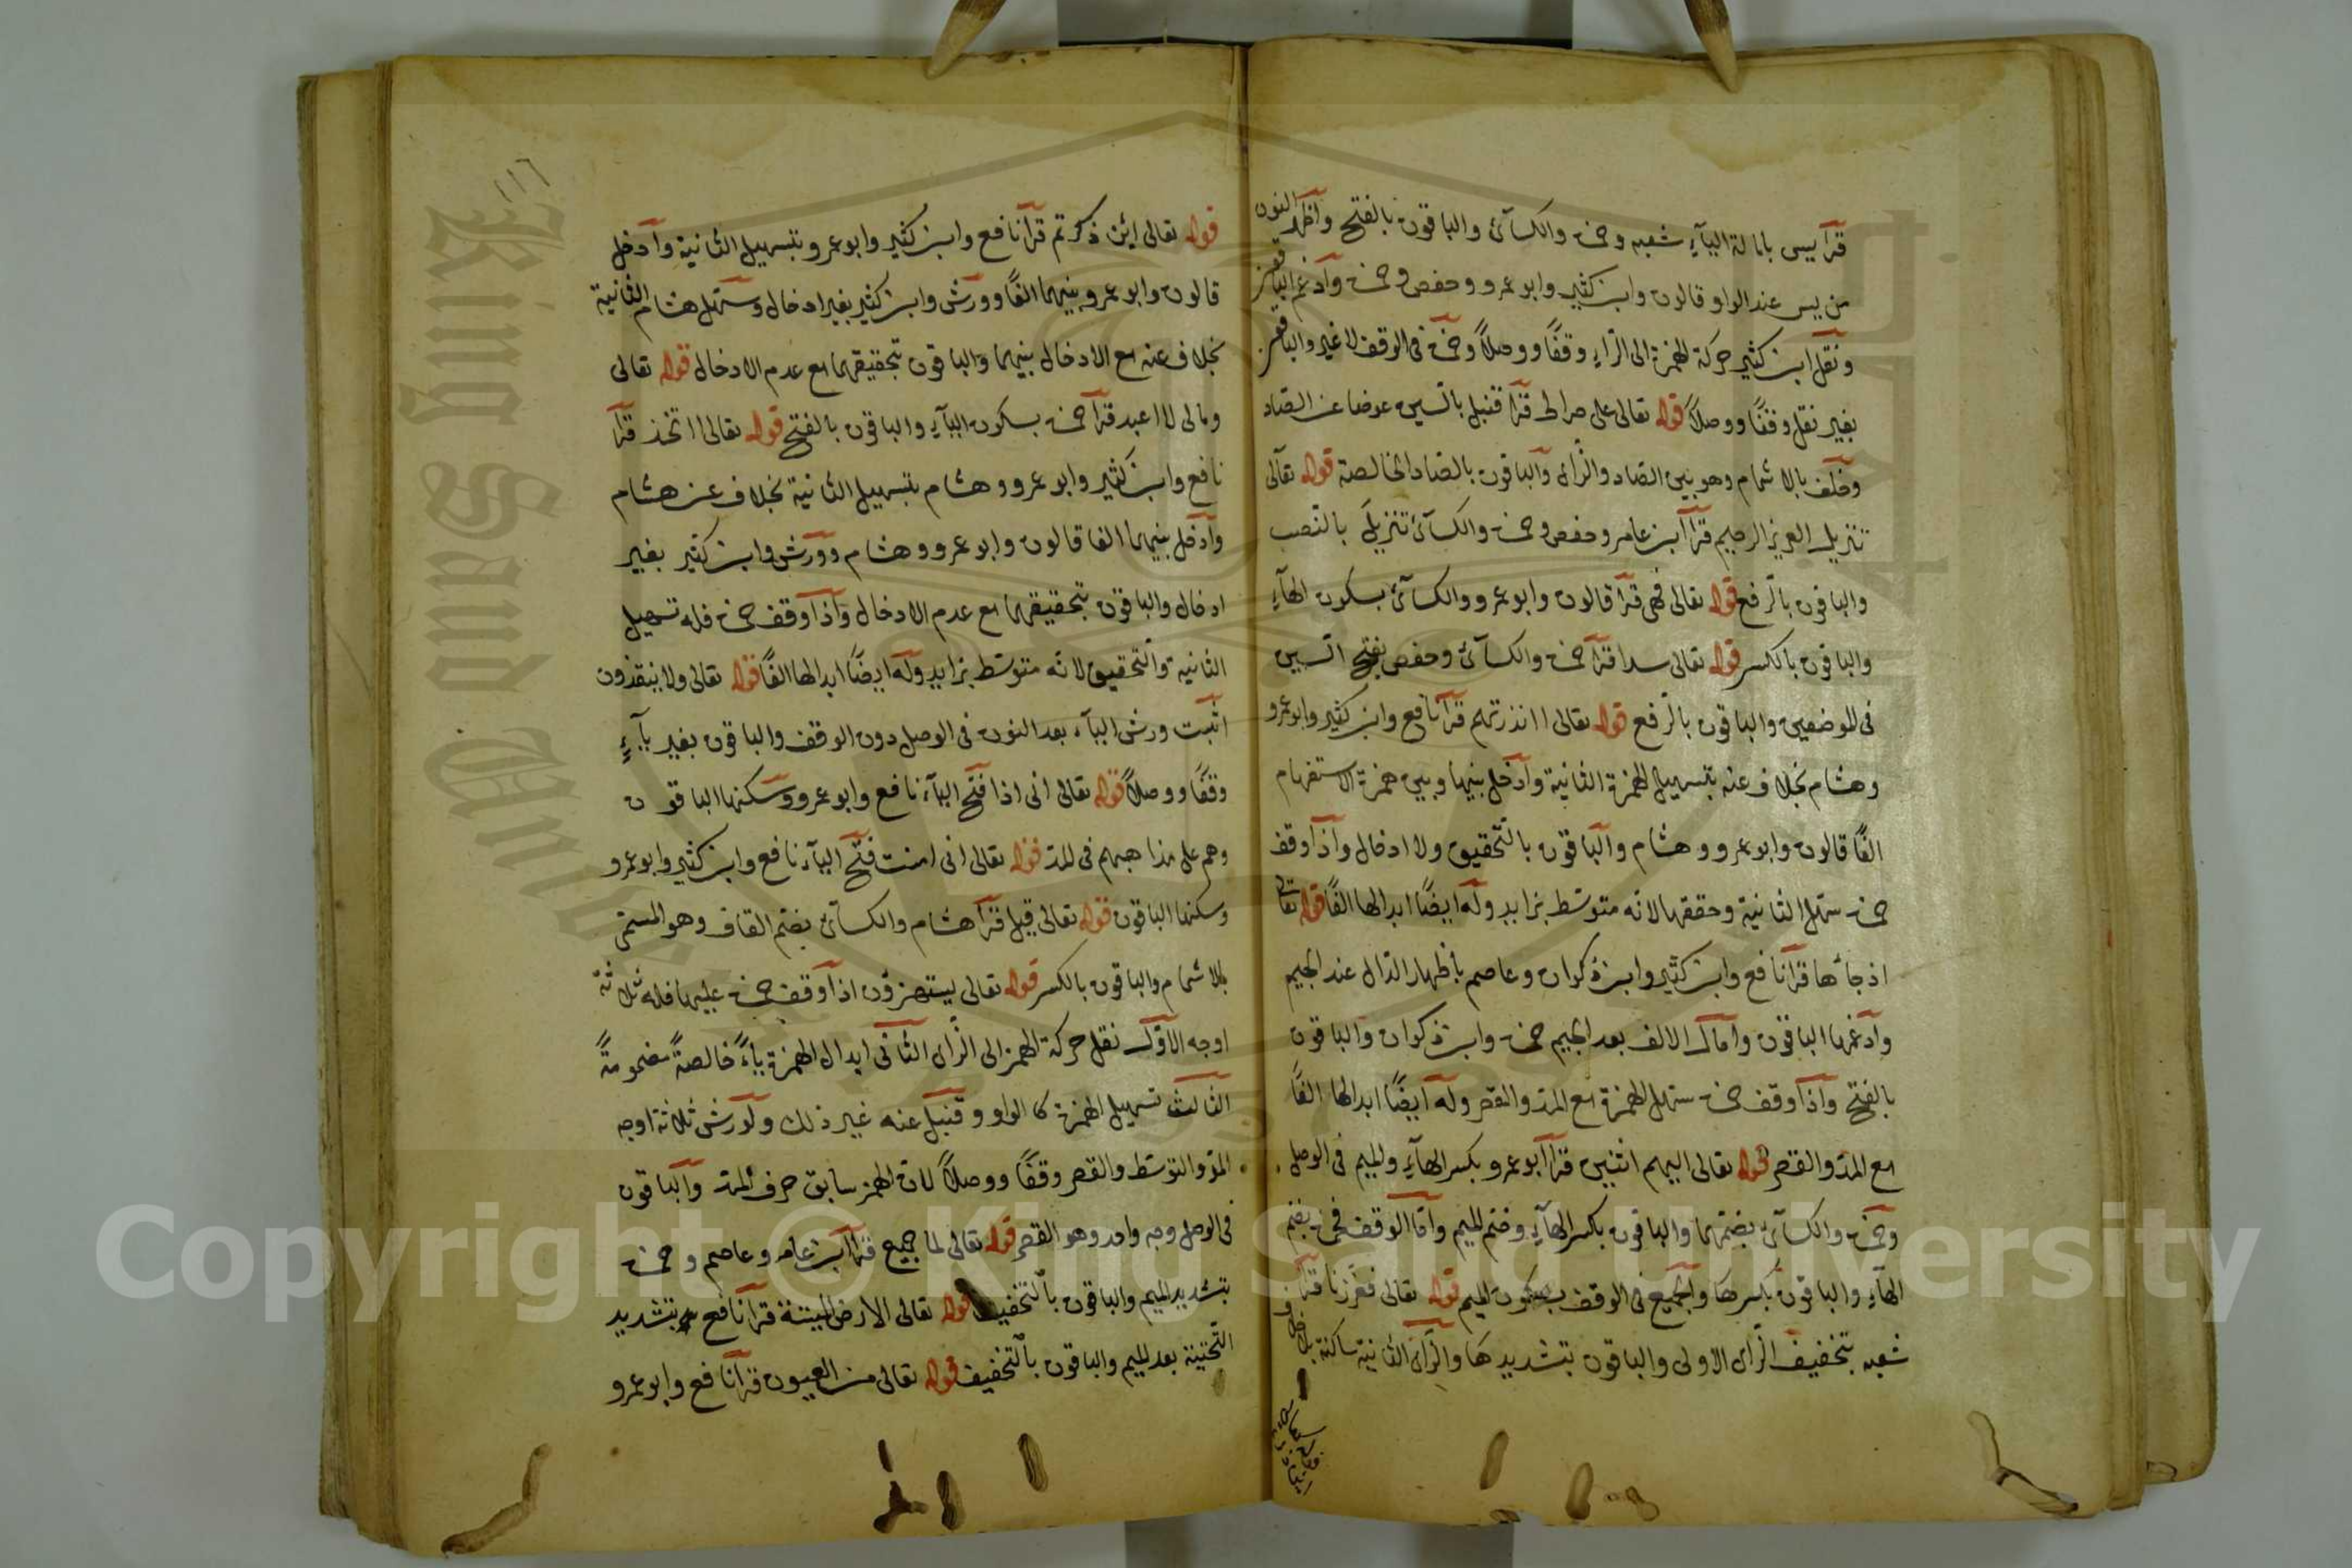 قرأ يس بامالة اليآء شعبه وحمزة والكسآئ والباقون بالفتح وأظهر النون
من يس عند الواو قالون وابن كثير وابو عمرو وحفص وحمزة وأدغم الباقون
ونقل ابن كثير حركة الهمزة الى الرآء وقفًا ووصلاً وحمزة فى الوقف لا غير والباقون
بغير نقل وقفًا ووصلاً قوله تعالى على صراط قرأ قنبل بالسين عوضا عن الصاد
وخلف بالاشمام وهو بين الصاد والزاى والباقون بالصاد الخالصة قوله تعالى
تنزيل العزيز الرحيم قرأ ابن عامر وحفص وحمزة والكسآئ تنزيلَ بالنصب
والباقون بالرفع قوله تعالى فهى قرأ قالون وابو عمرو والكسآئ بسكون الهآء
والباقون بالكسر قوله تعالى سدا قرأ حمزة والكسآئ وحفص بفتح السين
فى الموضعين والباقون بالرفع قوله تعالى اانذرتهم قرأ نافع وابن كثير وابو عمرو
وهشام بخلاف عنه بتسهيل الهمزة الثانية وأدخل بينها وبين همزة الاستفهام
الفًا قالون وابو عمرو وهشام والباقون بالتحقيق ولا ادخال واذا وقف
حمزة سهل الثانية وحققها لانه متوسط بزايد وله ايضًا ابدالها الفًا قوله تعالى
اذ جآئها قرأ نافع وابن كثير وابن ذكوان وعاصم باظهار الذال عند الجيم
وأدغمها الباقون وامال الالف بعد الجيم حمزة وابن ذكوان والباقون
بالفتح واذا وقف حمزة سهل الهمزة مع المد والقصر وله ايضًا ابدالها الفًا
مع المد والقصر قوله تعالى اليهم اثنين قرأ ابو عمرو بكسر الهآء والميم فى الوصل
وحمزة والكسآئ بضمهما والباقون بكسر الهآء وضم الميم وأما الوقف فحمزة بضم
الهآء والباقون بكسرها والجميع فى الوقف بسكون الميم قوله تعالى فعززنا قرأ
شعبه بتخفيف الزاى الاولى والباقون بتشديدها والزاى الثانية ساكنة بلا خلاف
١١٦
قوله تعالى ائن ذكرتم قرأ نافع وابن كثير وابو عمرو بتسهيل الثانية وأدخل
قالون وابو عمرو بينهما الفًا وورش وابن كثير بغير ادخال وسهل هشام الثانية
بخلاف عنه مع الادخال بينهما والباقون بتحقيقهما مع عدم الادخال قوله تعالى
ومالى لا اعبد قرأ حمزة بسكون اليآء والباقون بالفتح قوله تعالى ااتخذ قرأ
نافع وابن كثير وابو عمرو وهشام بتسهيل الثانية بخلاف عن هشام
وأدخل بينهما الفا قالون وابو عمرو وهشام وورش وابن كثير بغير
ادخال والباقون بتحقيقهما مع عدم الادخال واذا وقف حمزة فله تسهيل
الثانية والتحقيق لانه متوسط بزايد وله ايضًا ابدالها الفًا قوله تعالى ولا ينقذون
اثبت ورش اليآء بعد النون فى الوصل دون الوقف والباقون بغير يآءٍ
وقفًا ووصلاً قوله تعالى انى اذا فتح اليآء نافع وابو عمرو وسكنها الباقون
وهم على مذاهبهم فى المد قوله تعالى انى امنت فتح اليآء نافع وابن كثير وابو عمرو
وسكنها الباقون قوله تعالى قيل قرأ هشام والكسآئ بضم القاف وهو المسمى
بالاشمام والباقون بالكسر قوله تعالى يستهزؤن اذا وقف حمزة عليها فله ثلاثة
اوجه الاول نقل حركة الهمز الى الزاى الثانى ابدال الهمزة ياءً خالصةً مضمومةً
الثالث تسهيل الهمزة كالواو وقنبل عنه غير ذلك ولورش ثلاثة اوجه
المد والتوسط والقصر وقفًا ووصلاً لان الهمز سابق حرف المد والباقون
فى الوصل وجه واحد وهو القصر قوله تعالى لما جميع قرأ ابن عامر وعاصم وحمزة
بتشديد الميم والباقون بالتخفيف قوله تعالى الارض الميتة قرأ نافع بتشديد
التحتية بعد الميم والباقون بالتخفيف قوله تعالى من العيون قرأ نافع وابو عمرو
King Saud University
Copyright © King Saud University